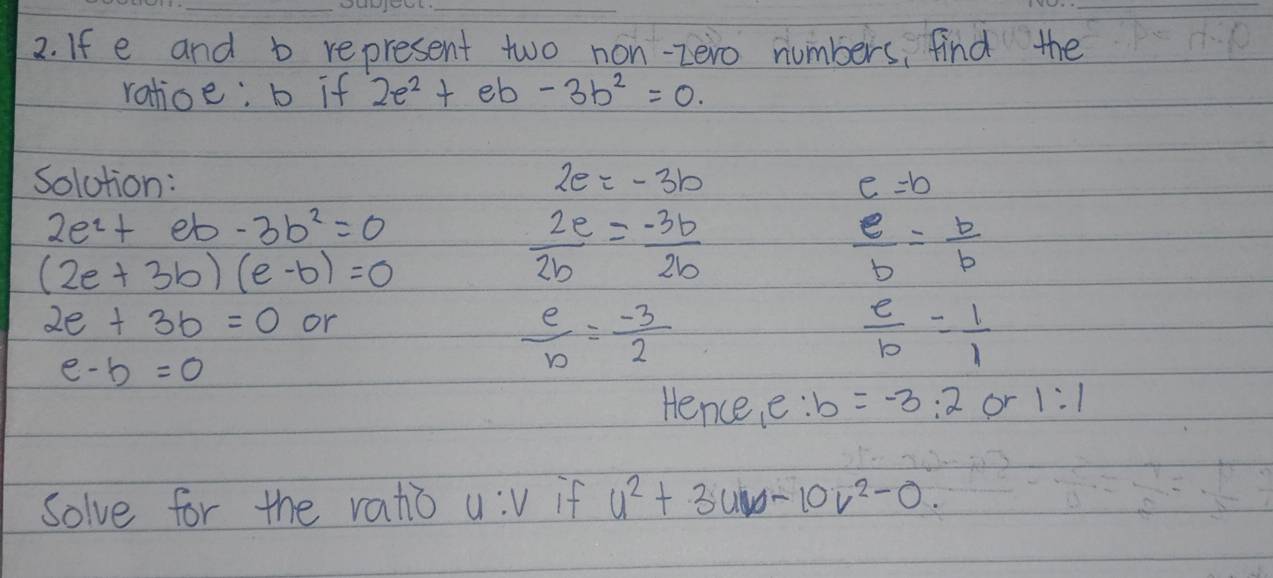 Subject:
No.:
2. If e and b represent two non-zero numbers, find the
ratio e : b if 2e² + eb - 3b² = 0.
Solution:
2e² + eb - 3b² = 0
(2e + 3b) (e - b) = 0
2e + 3b = 0 or
e - b = 0
2e = - 3b
2e/2b = -3b/2b
e/b = -3/2
e = b
e/b = b/b
e/b = 1/1
Hence, e : b = -3 : 2 or 1 : 1
Solve for the ratio u : v if u² + 3uv - 10v² - 0.